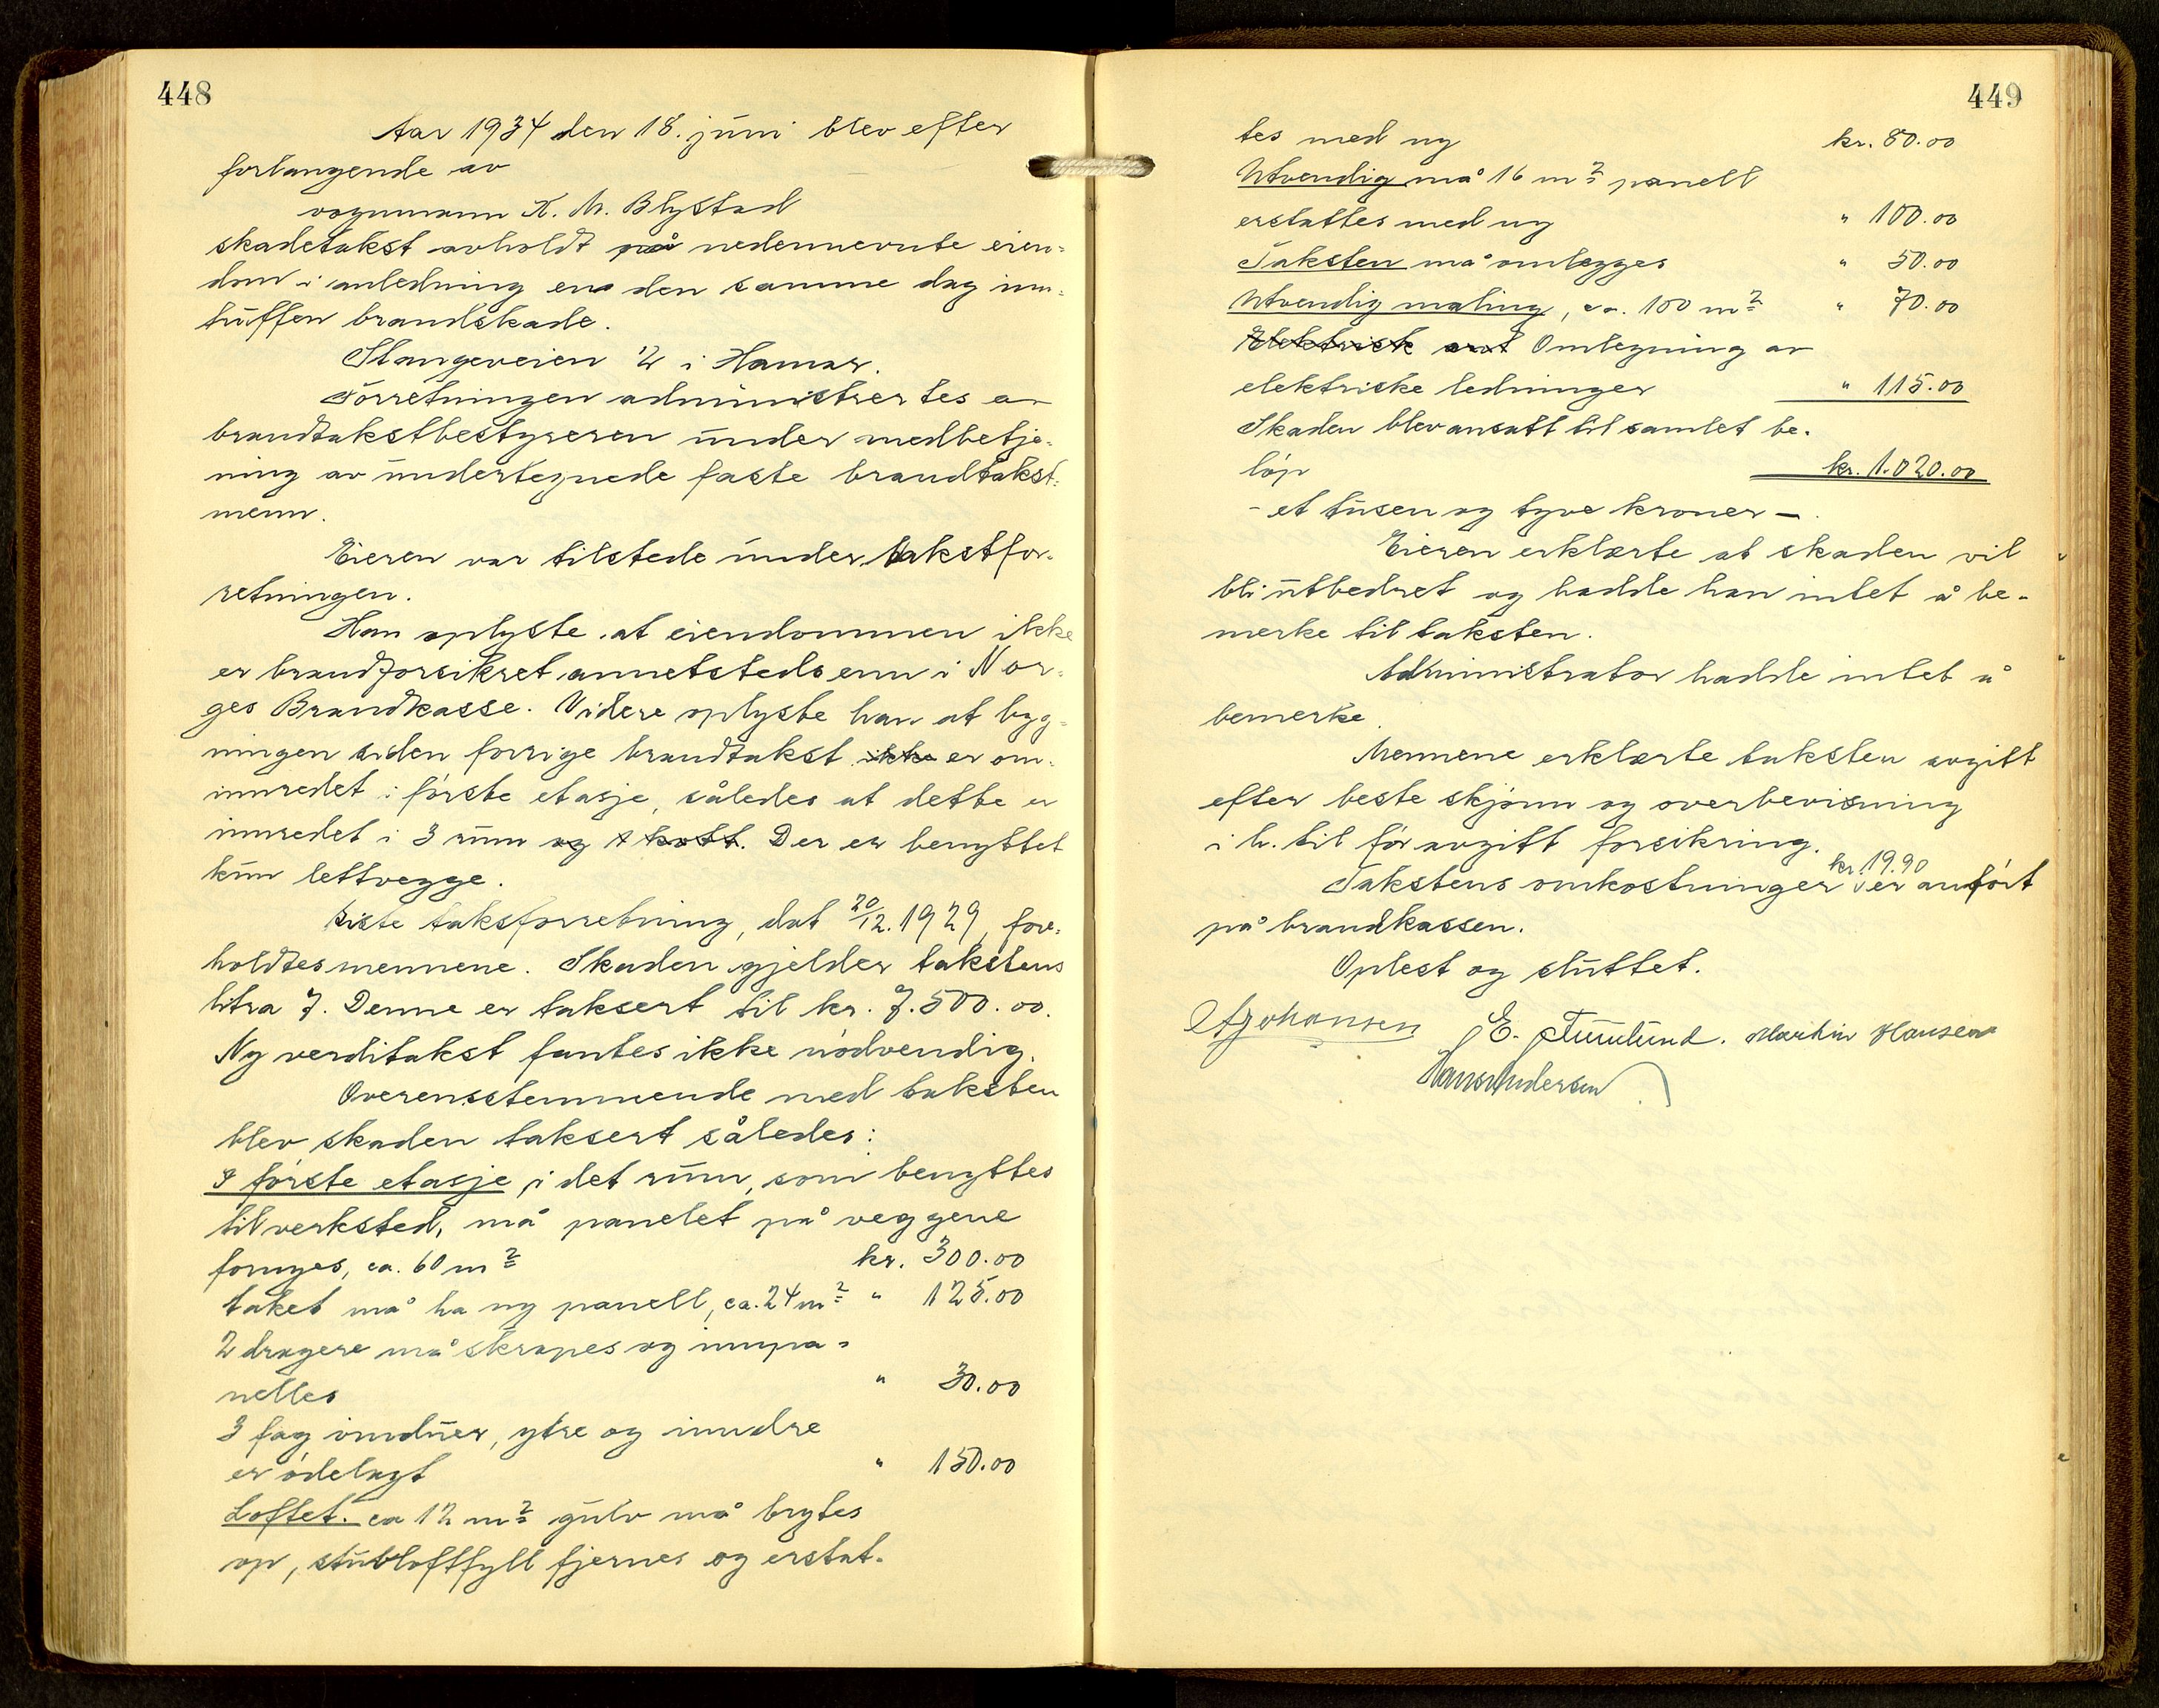 448
Aar 1934 den 18. juni blev efter
forlangende av
vognmann K. M. Blystad
skadetakst avholdt på nedennevnte eien-
dom i anledning en den samme dag inn-
truffen brandskade.
Stangeveien 2 i Hamar.
Forretningen administrertes av
brandtakstbestyreren under medbetje-
ning av undertegnede faste brandtakst-
menn.
Eieren var tilstede under takstfor-
retningen.
Han oplyste at eiendommen ikke
er brandforsikret annetsteds enn i Nor-
ges Brandkasse. Videre oplyste han at byg-
ningen siden forrige brandtakst ikke er om-
innredet i første etasje, således at dette er
innredet i 3 rum og 1 kott. Der er benyttet
kun lettvegge.
Siste taksforretning, dat 20/12. 1929, fore-
holdtes mennene. Skaden gjelder takstens
litra 7. Denne er taksert til kr. 7.500.00.
Ny verditakst fantes ikke nødvendig.
Overensstemmende med taksten
blev skaden taksert således:
I første etasje, i det rum, som benyttes
til verksted, må panelet på veggene
fornyes, ca. 60 m² kr. 300.00
taket må ha ny panell, ca. 24 m² " 125.00
2 dragere må skrapes og innpa-
nelles " 30.00
3 fag vinduer, ytre og inndre
er ødelagt " 150.00
Loftet. ca 12 m² gulv må brytes
op, stubloftfyll fjernes og erstat-
449
tes med ny kr. 80.00
Utvendig må 16 m² panell
erstattes med ny " 100.00
Taksten må omlegges " 50.00
Utvendig maling, ca. 100 m² " 70.00
Elektrisk Omlegning av
elektriske ledninger " 115.00
Skaden blev ansatt til samlet be-
løp kr. 1.020.00
- et tusen og tyve kroner -.
Eieren erklærte at skaden vil
bli utbedret og hadde han intet å be-
merke til taksten.
Administrator hadde intet å
bemerke.
Mennene erklærte taksten avgitt
efter beste skjønn og overbevisning
i h. til før avgitt forsikring.
Takstens omkostninger kr. 19.90 er anført
på brandkassen.
Oplest og sluttet.
A Johansen E. Tumlund. Martin Hansen
Hans Andersen